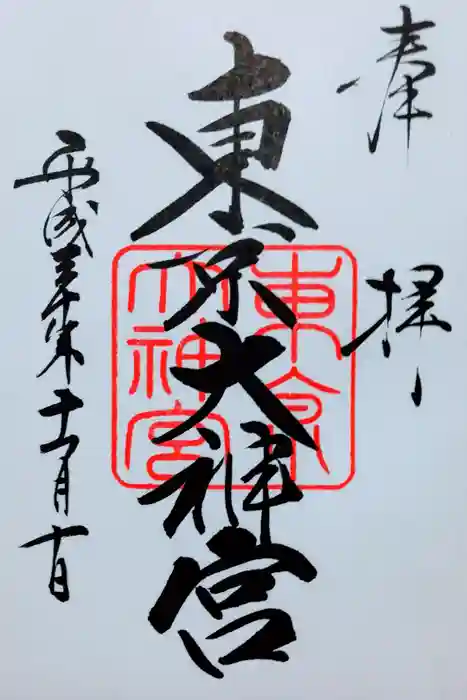 奉拝
東京大神宮
東京
大神宮
平成三十年十一月十日